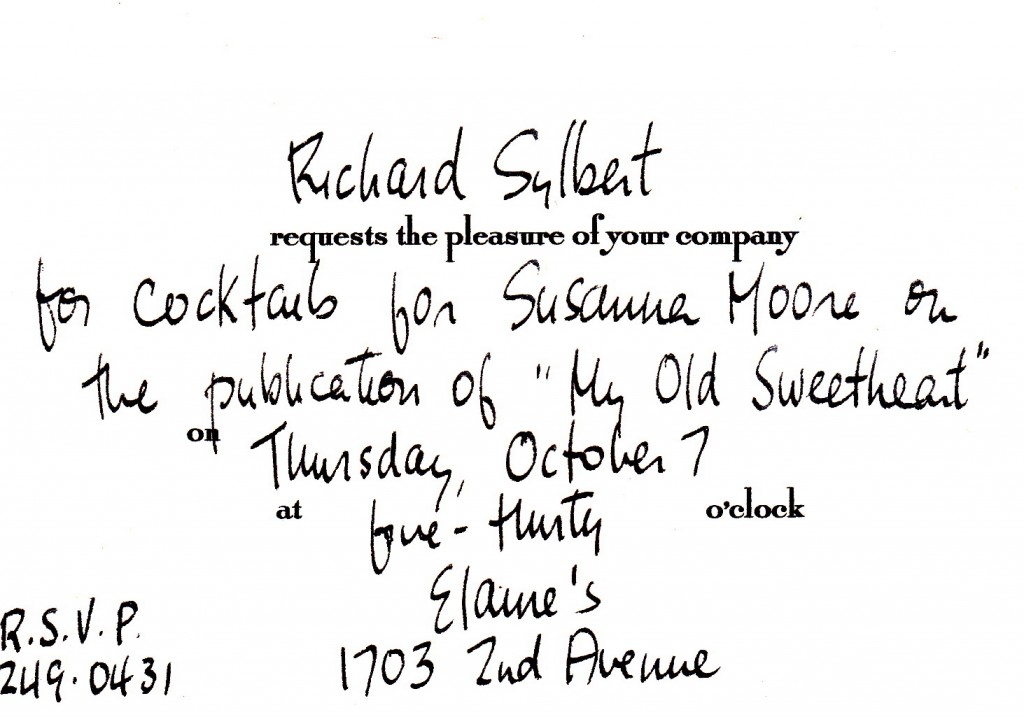 Richard Sylbert
requests the pleasure of your company
for cocktails for Susanna Moore on
the publication of "My Old Sweetheart"
on Thursday, October 7
at five-thirty o'clock
Elaine's
1703 2nd Avenue
R.S.V.P.
249.0431